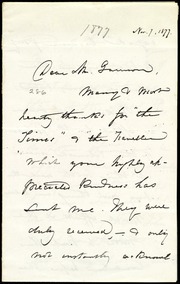 1877
Nov. 7, 1877.
Dear Mr. Garrison,
286
Many & most
hearty thanks for "the
Times" & "the Traveller"
which your highly ap-
preciated kindness has
sent me. They were
duly received, — & only
not instantly